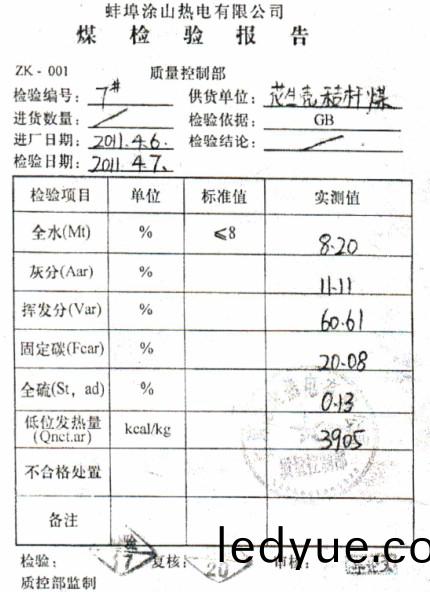 蚌埠涂山热电有限公司
煤检验报告
ZK-001 质量控制部
检验编号: 7# 供货单位: 花生壳秸杆煤
进货数量: / 检验依据: GB
进厂日期: 2011.4.6. 检验结论: /
检验日期: 2011.4.7.
检验项目 单位 标准值 实测值
全水(Mt) % ≤8 8.20
灰分(Aar) % 11.11
挥发分(Var) % 60.61
固定碳(Fcar) % 20.08
全硫(St, ad) % 0.13
低位发热量 kcal/kg 3905
(Qnct.ar)
不合格处置
备注
检验: 17 复核: 20 审核:
质控部监制
ledyue.co